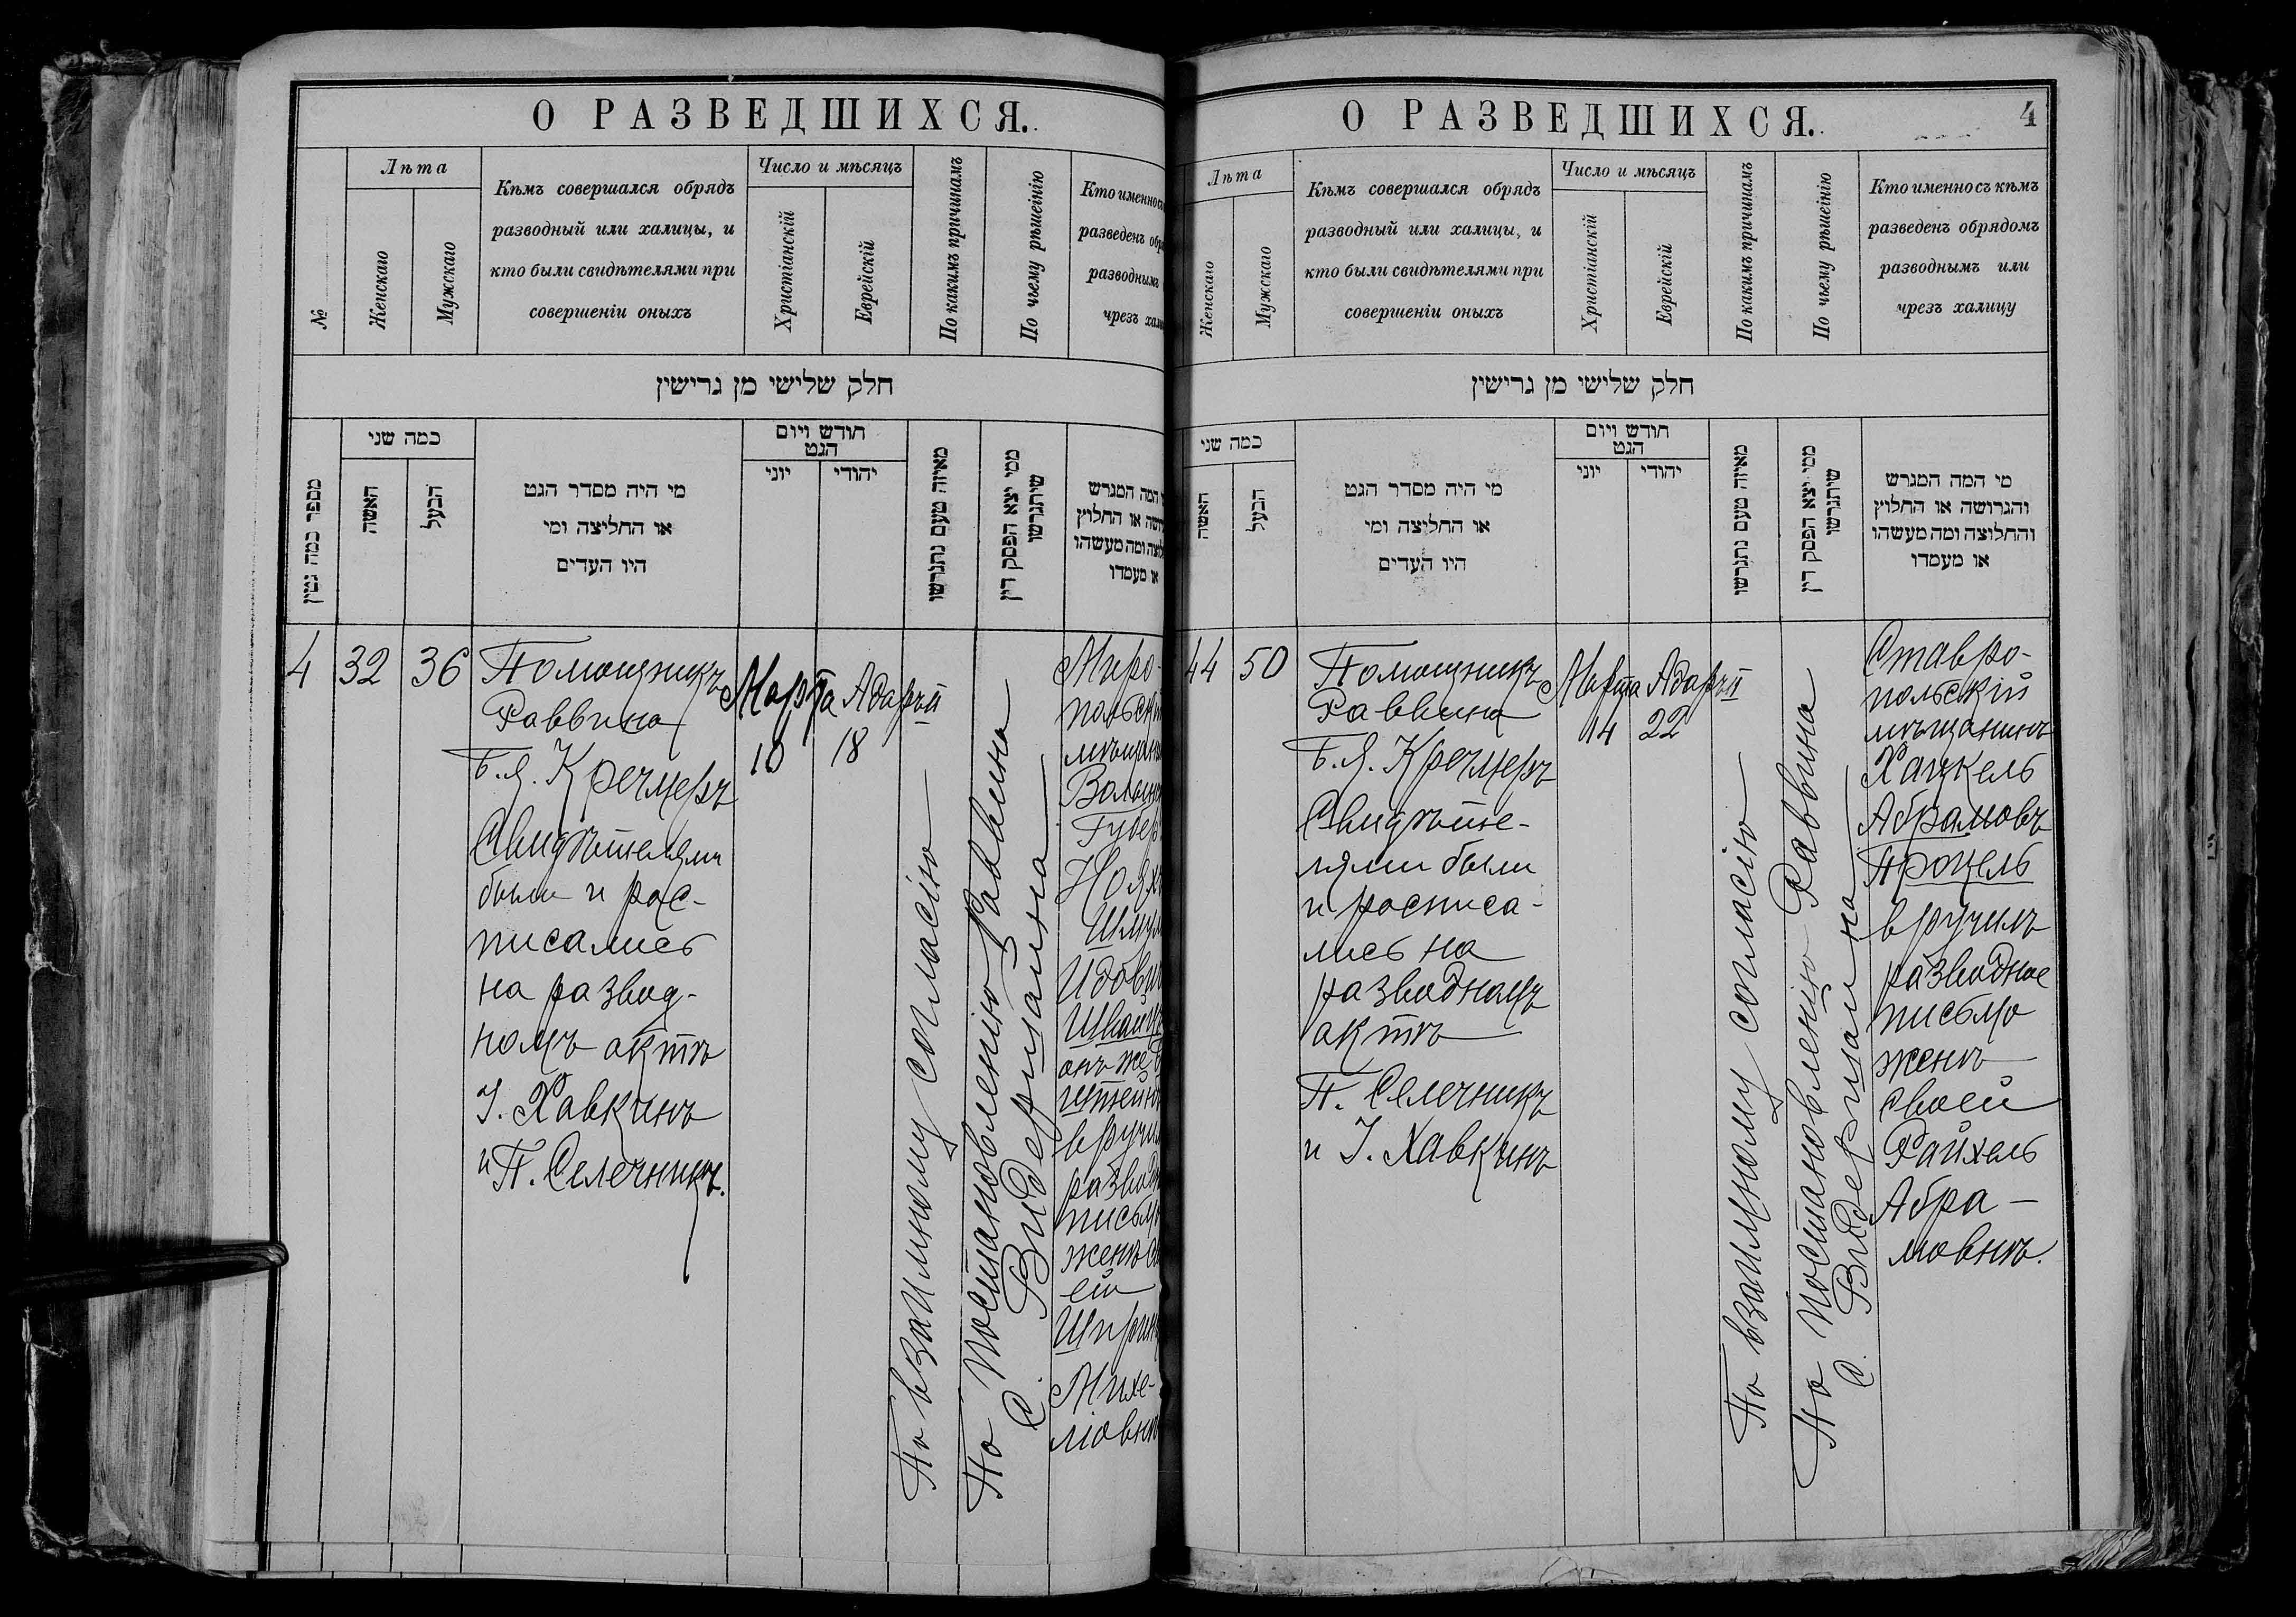 О РАЗВЕДШИХСЯ.
№
Лѣта
Женскаго
Мужскаго
Кѣмъ совершался обрядъ
разводный или халицы, и
кто были свидѣтелями при
совершеніи оныхъ
Число и мѣсяцъ
Христіанскій
Еврейскій
По какимъ причинамъ
По чьему рѣшенію
Кто именно съ
разведенъ обр
разводнымъ
чрезъ хал
חלק שלישי מן גרישין
מספר כמה גטין
כמה שני
האשה
הבעל
מי היה מסדר הגט
או החליצה ומי
היו העדים
חודש ויום
הגט
יוני
יהודי
מאיזה טעם נתגרשו
ממי יצא הפסק דין
שיתגרשו
המה המגרש
או החלוץ
ומה מעשהו
או מעמדו
4
32
36
Помощникъ
Раввина
Б. Я. Кречмеръ
Свидѣтелями
были и рас-
писались
на развод-
номъ актѣ
І. Хавкинъ
и П. Селечникъ.
Марта
10
Адаръ II
18
По взаимному согласію
По постановленію Раввина
С. Видермана
Миро-
польск
мѣщан
Волын
Губер
Шмул
Идов
онъ же
вруч
развод
письм
женѣ с
ей
Шпри
Михе-
ловн
О РАЗВЕДШИХСЯ.
4
Лѣта
Женскаго
Мужскаго
Кѣмъ совершался обрядъ
разводный или халицы, и
кто были свидѣтелями при
совершеніи оныхъ
Число и мѣсяцъ
Христіанскій
Еврейскій
По какимъ причинамъ
По чьему рѣшенію
Кто именно съ кѣмъ
разведенъ обрядомъ
разводнымъ или
чрезъ халицу
חלק שלישי מן גרישין
כמה שני
האשה
הבעל
מי היה מסדר הגט
או החליצה ומי
היו העדים
חודש ויום
הגט
יוני
יהודי
מאיזה טעם נתגרשו
ממי יצא הפסק דין
שיתגרשו
מי המה המגרש
והגרושה או החלוץ
והחלוצה ומה מעשהו
או מעמדו
44
50
Помощникъ
Раввина
Б. Я. Кречмеръ
Свидѣте-
лями были
и росписа-
лись на
разводномъ
актѣ
П. Селечникъ
и І. Хавкинъ
Марта
14
Адаръ II
22
По взаимному согласію
По постановленію Раввина
С. Видермана
Ставро-
польскій
мѣщанинъ
Хацкель
Абрамовъ
Троцель
вручилъ
разводное
письмо
женѣ
своей
Райхель
Абра-
мовнѣ.